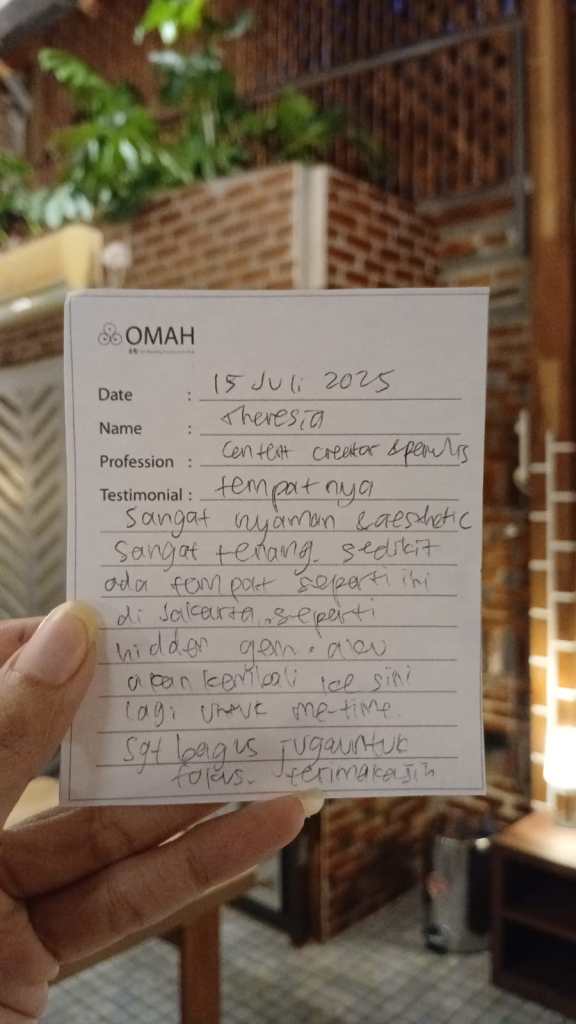 OMAH
Date : 15 Juli 2025
Name : Theresia
Profession : Content creator & penulis
Testimonial : tempatnya
sangat nyaman & aesthetic
sangat tenang. sedikit
ada tempat seperti ini
di Jakarta. seperti
hidden gem. aku
akan kembali ke sini
lagi untuk me-time.
sgt bagus juga untuk
fokus. terimakasih